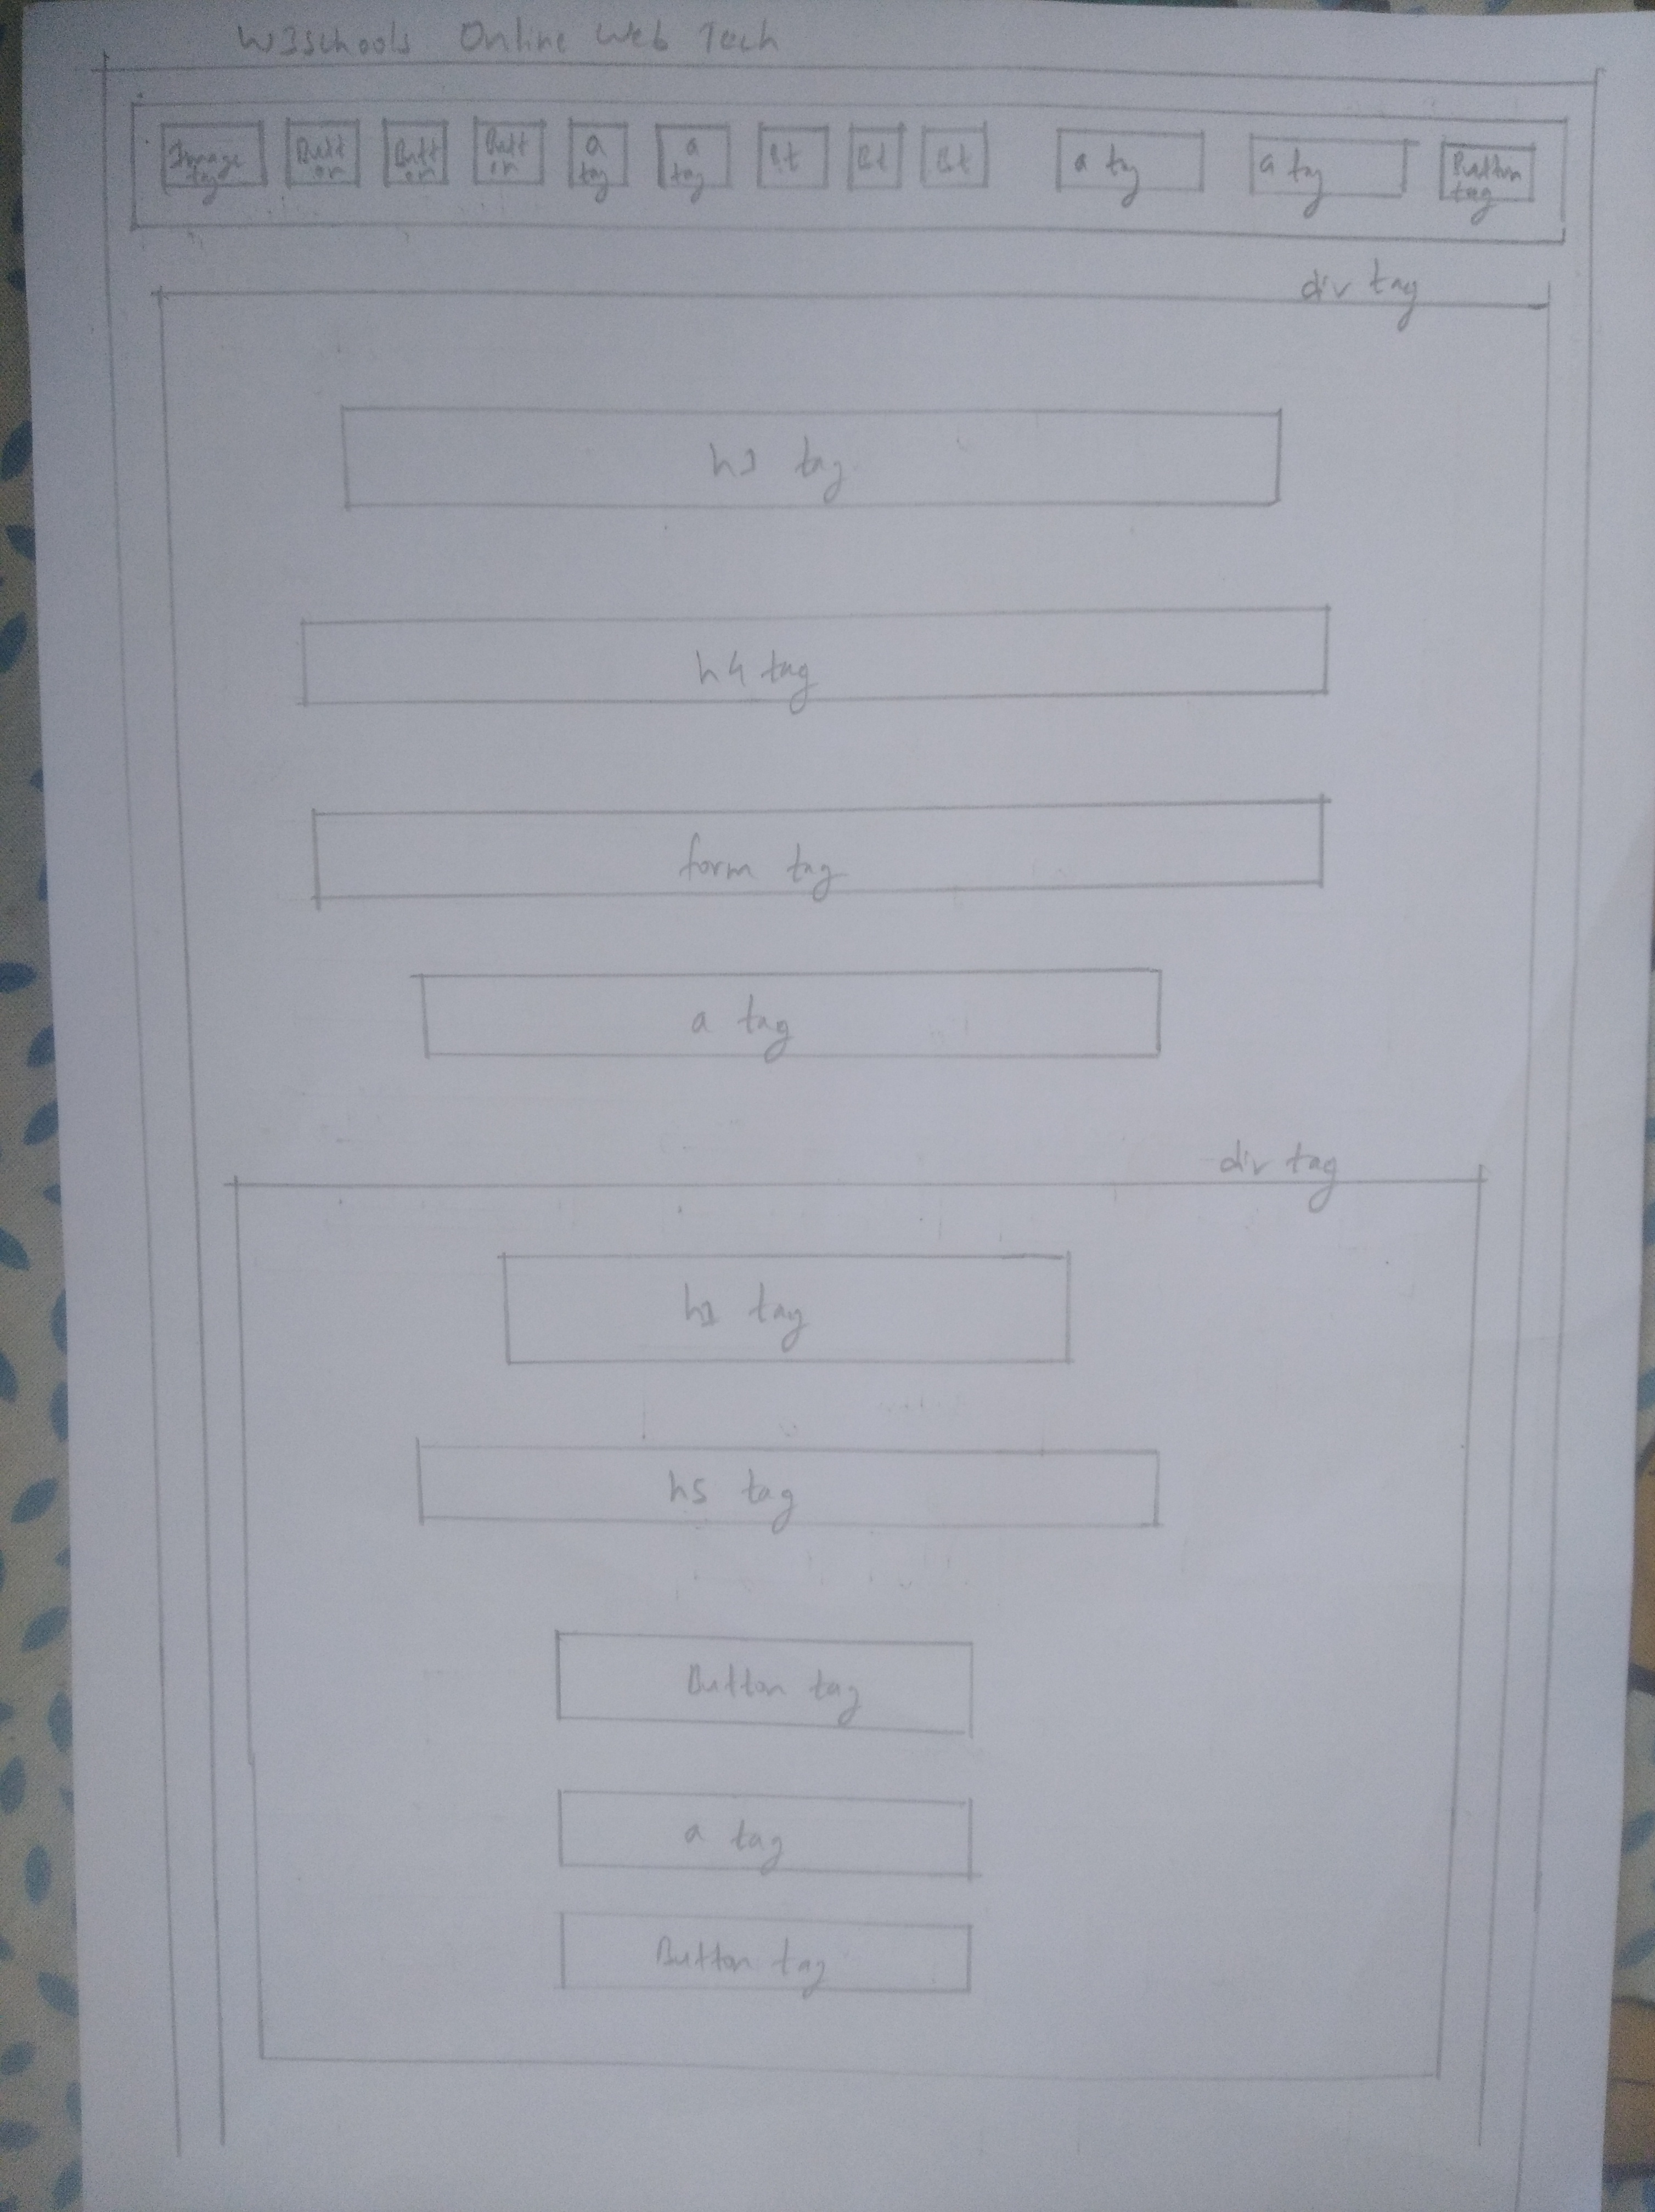 W3Schools Online Web Tech
Image tag
Butt on
Butt on
Butt on
a tag
a tag
Bt
Bt
Bt
a tag
a tag
Button tag
div tag
h1 tag
h4 tag
form tag
a tag
div tag
h1 tag
h5 tag
Button tag
a tag
Button tag